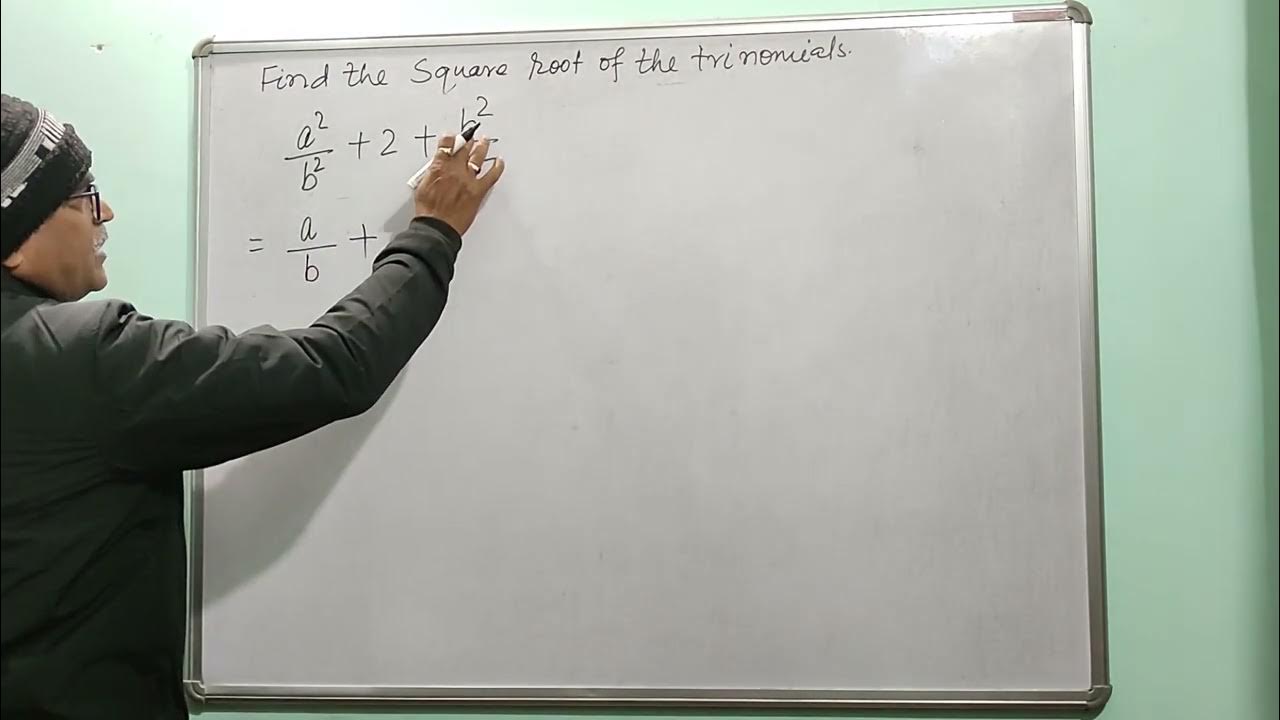 Find the Square root of the trinomials.
a²/b² + 2 + b²
= a/b +